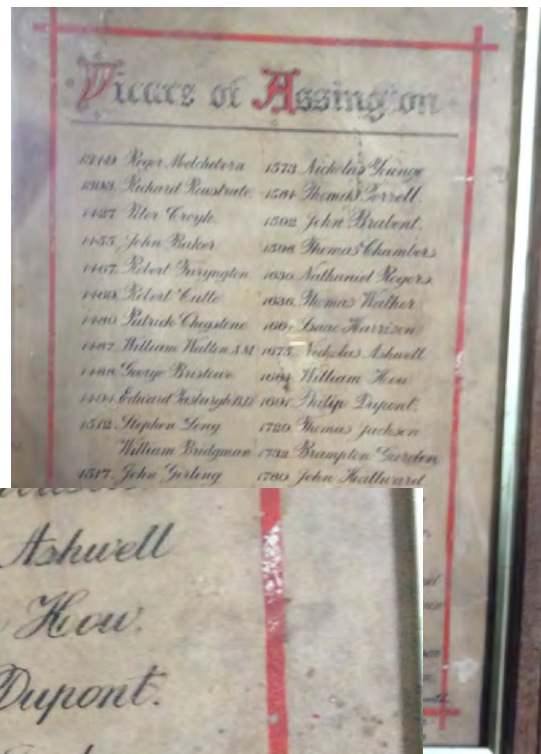 Vicars of Assington
Roger
1393 Richard
1427 Peter Croyle
1455 John Baker
1467 Robert
1469 Robert Cutte
1480 Patrick Chegstene
1487 William Walton A M
1488 George Bristowe
1494 Edward
1512 Stephen Long
William Bridgman
1517 John Girling
1573 Nicholas Younge
1584 Thomas Terrell.
1592 John Brabent.
1596 Thomas Chambers
1630 Nathaniel Rogers.
1636 Thomas Walker
Isaac Harrison
1675 Nicholas Ashwell
1684 William How
1691 Philip Dupont.
1720 Thomas Jackson
1732 Brampton Gurdon
1760 John Hallward
Ashwell
How.
Dupont.